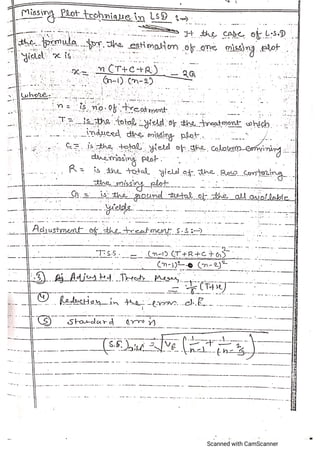 Missing Plot technique in LSD :→
In the case of L.S.D
the formula for the estimation of one missing plot
yield x is
x = n(T+C+R) / (n-1)(n-2) - 2G
where
n = is no. of treatment
T = is the total yield of the treatment which
induced the missing plot.
C = is the total yield of the column containing
the missing plot.
R = is the total yield of the Row containing
the missing plot
G = is the ground total of the all available
yields
Adjustment of the treatment S.S :→
T.S.S. = (n-1)(T+R+C+G)² / (n-1)² (n-2)²
③ Adjusted Treat. Mean
= 1/r (T+x)
④ Reduction in the error d.f.
⑤ Standard error
Scanned with CamScanner